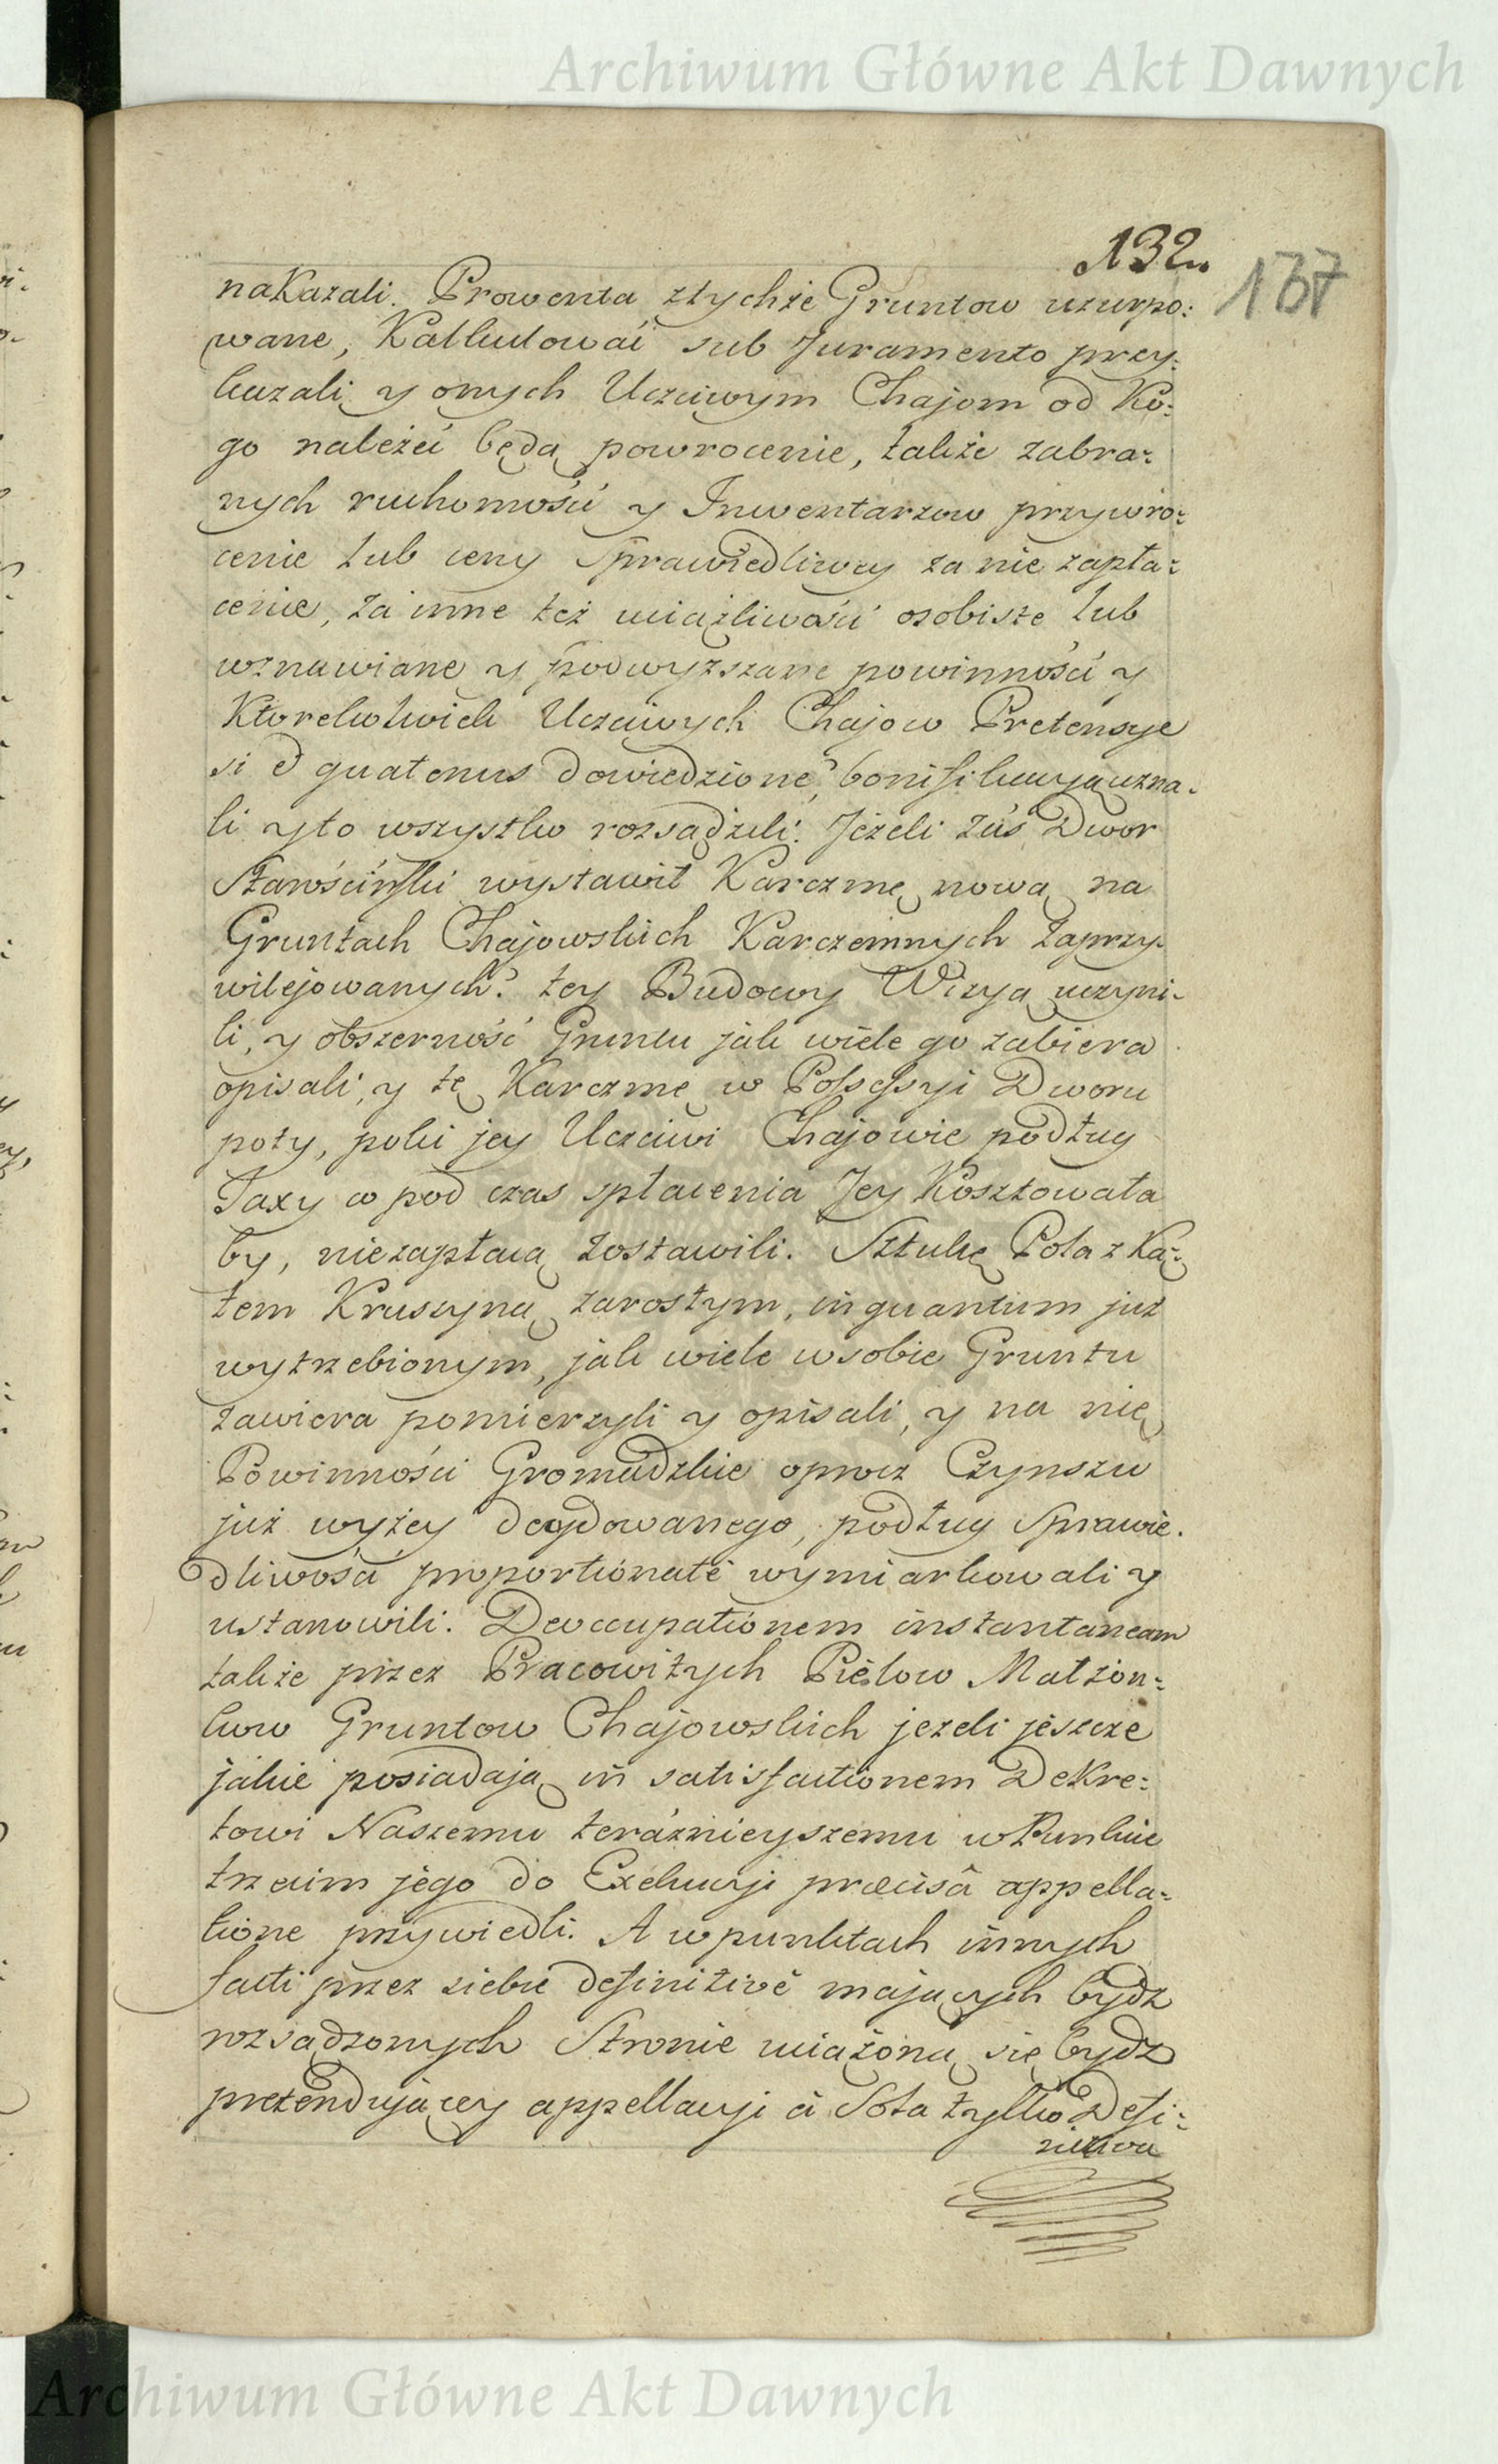 Archiwum Główne Akt Dawnych
132.
137
nakazali. Prowenta ztychże Gruntow uzurpo:
wane, Kalkulować sub Juramento przy:
kazali y onych Uczciwym Chajom od Ko:
go należeć będą powrocenie, także zabra:
nych ruchomości y Inwentarzow przywro:
cenie lub ceny Sprawiedliwey za nie zapła:
cenie, za inne też uciążliwości osobiste lub
wznawiane y podwyższane powinności y
Ktorekolwiek Uczciwych Chajow Pretensye
si & quatenus dowiedzione, bonifikacyą uzna:
li y to wszystko rozsądzili. Jeżeli zaś Dwor
Starościński wystawił Karczmę nową na
Gruntach Chajowskich Karczemnych zaprzy-
wilejowanych? tey Budowy Wizyą uczyni-
li, y obszerność Gruntu jak wiele go zabiera
opisali, y tę Karczmę w Possessyi Dworu
poty, poki jey Uczciwi Chajowie podług
Taxy co pod czas spłacenia Jey Kosztowała
by, niezapłacą zostawili. Sztukę Pola z Ką:
tem Kruszyną zarosłym, in quantum już
wytrzebionym, jak wiele w sobie Gruntu
zawiera pomierzyli y opisali, y na nię
Powinności Gromadzkie oprocz Czynszu
już wyżey decydowanego, podług Sprawie.
dliwości proportionate wymiarkowali y
ustanowili. Deoccupationem instantaneam
także przez Pracowitych Piêlow Małżon:
kow Gruntow Chajowskich jezeli jeszcze
jakie posiadają in satisfactionem Dekre:
towi Naszemu teráznieyszemu w Punkcie
trzecim jego do Exekucyi præcisâ appella:
tione przywiedli. A w punktach innych
facti przez siebie definitivè mających bydz
rozsądzonych Stronie uciążoną się bydz
pretendującey appellacyi à Sola tylko Defi:
nitiva
Archiwum Główne Akt Dawnych